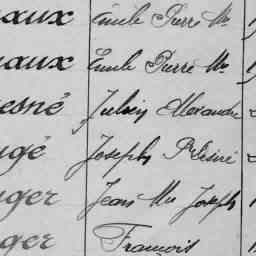 aux Emile Pierre Me
aux Emile Pierre Me
esné Julien Alexandre
gé Joseph Désiré
ger Jean Me Joseph
ger François